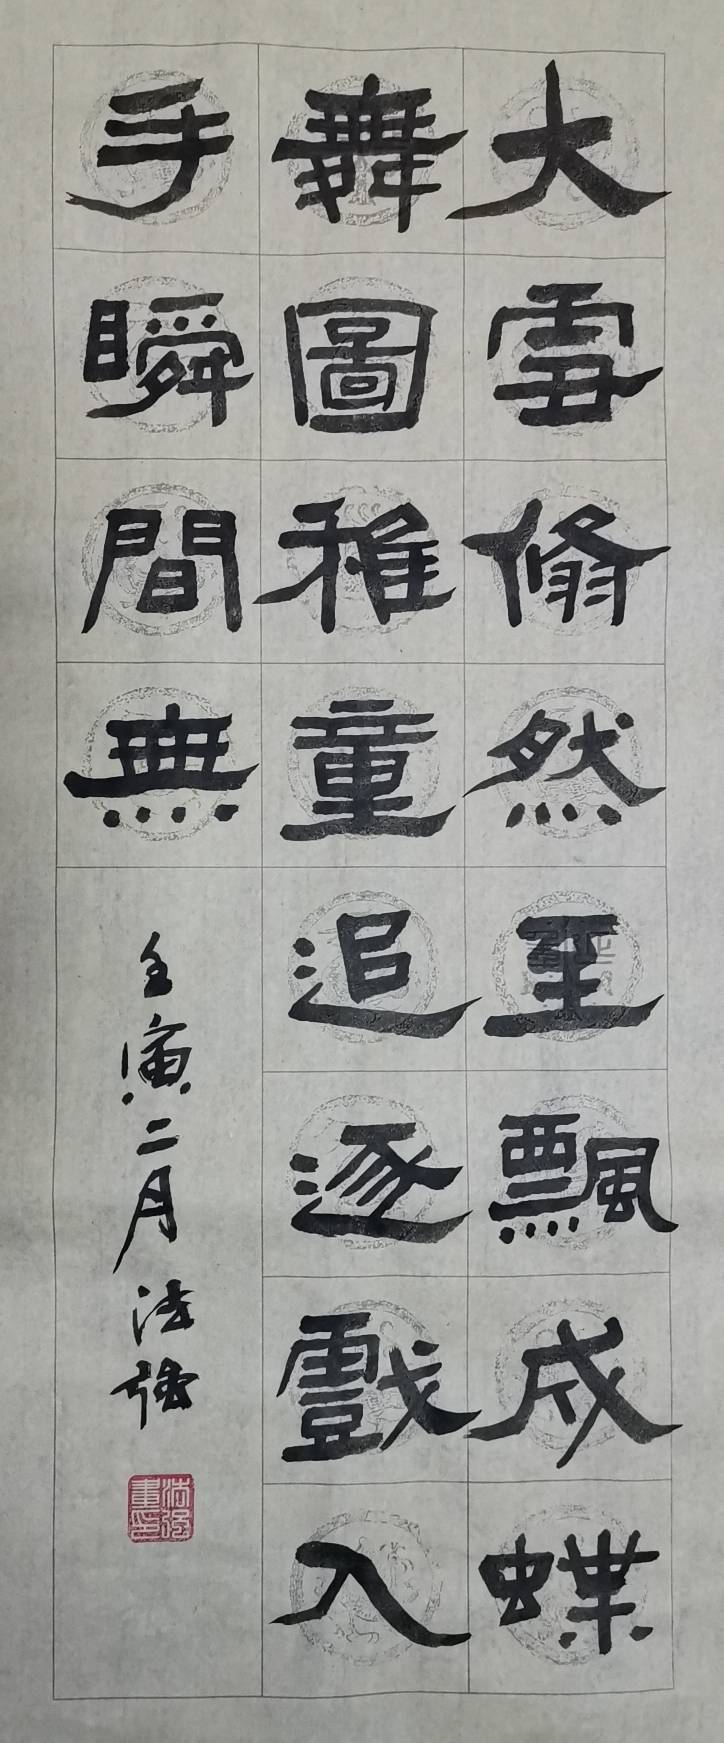 大雪翛然至飄成蝶
舞圖稚童追逐戲入
手瞬間無
壬寅二月法強
法强書印